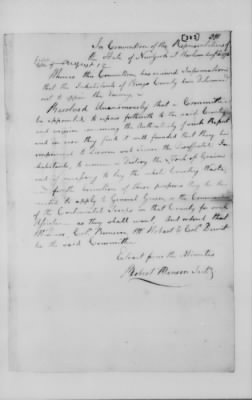 In Convention of the Representatives of
the State of New York at Harlaem
August 10
Whereas this Convention has received Information
that the Inhabitants of Kings County have determined
not to oppose the Enemy
Resolved Unanimously that a Committee
be appointed to repair forthwith to the said County
and inquire concerning the Authenticity of such Report
and in case they find it well founded that they be
empowered to disarm and secure the disaffected In-
habitants, to remove or destroy the Stock of Grain
and if necessary to lay the whole Country Waste
execution of these purposes they be
to apply to General Green or the Commander
of the Continental Troops in that County for such
Assistance as they shall want. And ordered that
Mr
be the said Committee
Extract from the Minutes
Robert Benson Secry